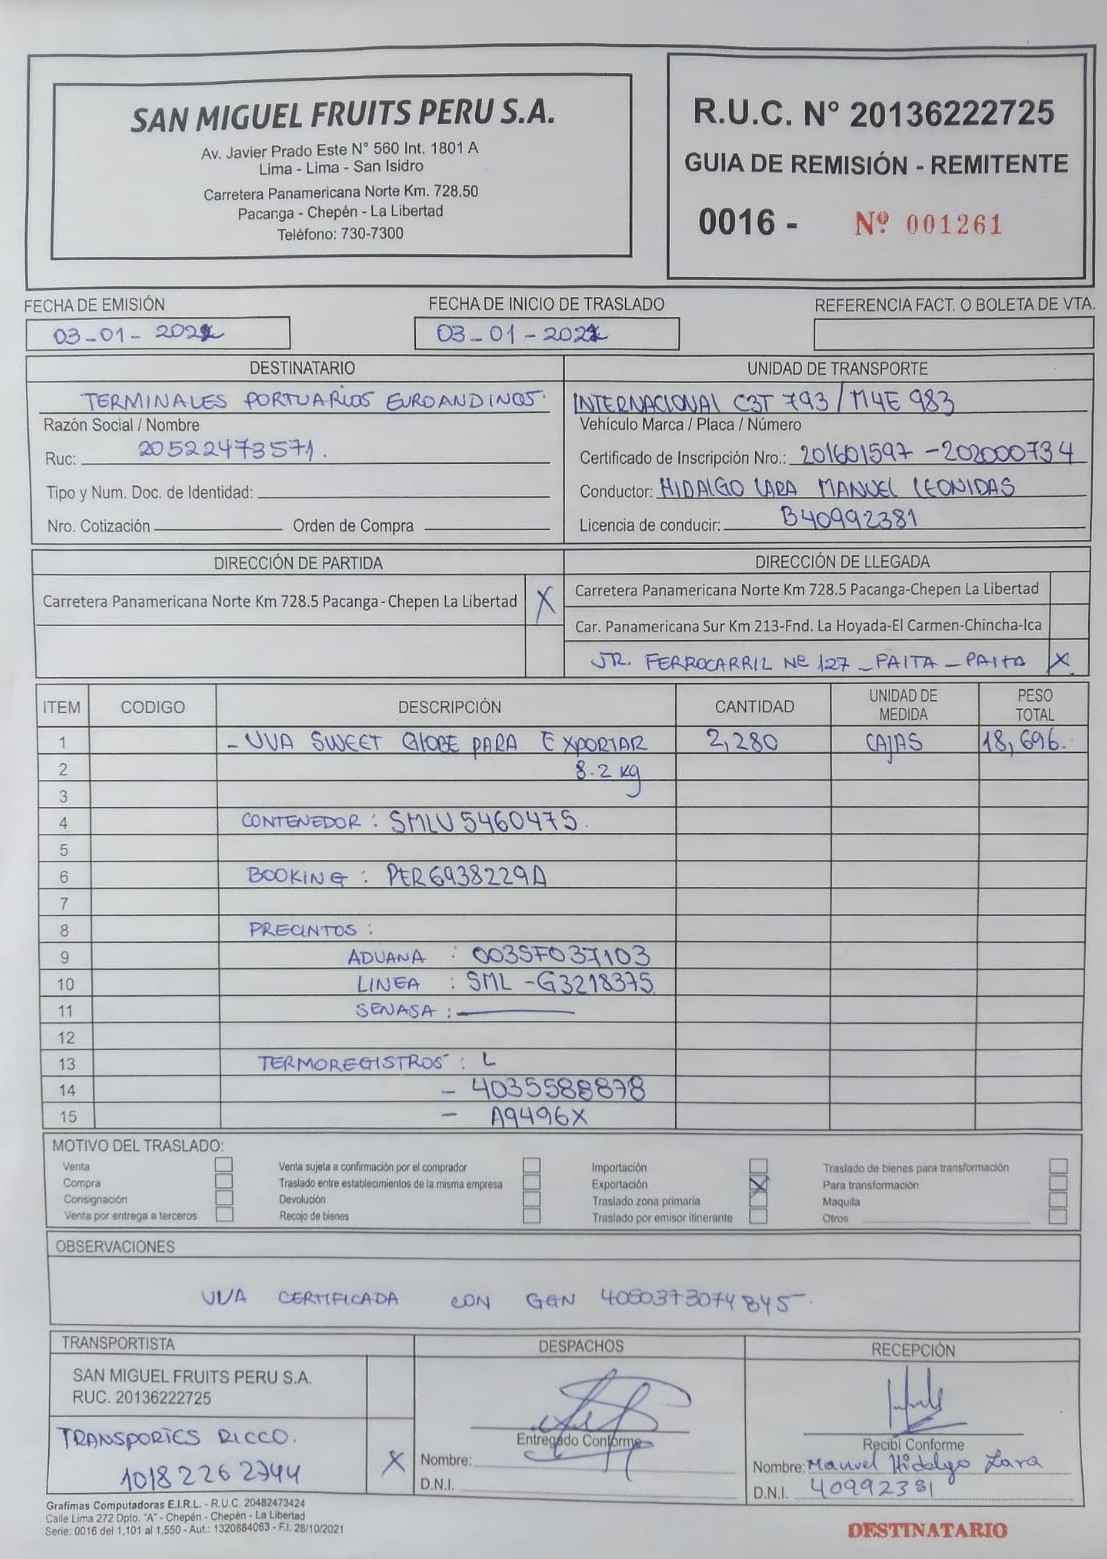 SAN MIGUEL FRUITS PERU S.A.
Av. Javier Prado Este N° 560 Int. 1801 A
Lima - Lima - San Isidro
Carretera Panamericana Norte Km. 728.50
Pacanga - Chepén - La Libertad
Teléfono: 730-7300
R.U.C. N° 20136222725
GUIA DE REMISIÓN - REMITENTE
0016 - Nº 001261
FECHA DE EMISIÓN
03-01-2022
FECHA DE INICIO DE TRASLADO
03-01-2022
REFERENCIA FACT. O BOLETA DE VTA.
DESTINATARIO
TERMINALES PORTUARIOS EUROANDINOS.
Razón Social / Nombre
Ruc: 20522473571.
Tipo y Num. Doc. de Identidad:
Nro. Cotización Orden de Compra
UNIDAD DE TRANSPORTE
INTERNACIONAL C3T 793 / M4E 983
Vehículo Marca / Placa / Número
Certificado de Inscripción Nro.: 201601597 - 202000734
Conductor: HIDALGO LARA MANUEL LEONIDAS
Licencia de conducir: B40992381
DIRECCIÓN DE PARTIDA
Carretera Panamericana Norte Km 728.5 Pacanga-Chepen La Libertad X
DIRECCIÓN DE LLEGADA
Carretera Panamericana Norte Km 728.5 Pacanga-Chepen La Libertad
Car. Panamericana Sur Km 213-Fnd. La Hoyada-El Carmen-Chincha-Ica
JR. FERROCARRIL Nº 127 - PAITA - PAITA X
ITEM CODIGO DESCRIPCIÓN CANTIDAD UNIDAD DE MEDIDA PESO TOTAL
1 - UVA SWEET GLOBE PARA EXPORTAR 2,280 CAJAS 18,696.
2 8.2 kg
3
4 CONTENEDOR : SMLU 5460475.
5
6 BOOKING : PER6938229A
7
8 PRECINTOS :
9 ADUANA : 003SF037103
10 LINEA : SML -G3218375
11 SENASA :
12
13 TERMOREGISTROS : L
14 - 4035588878
15 - A9496X
MOTIVO DEL TRASLADO:
Venta
Compra
Consignación
Venta por entrega a terceros
Venta sujeta a confirmación por el comprador
Traslado entre establecimientos de la misma empresa
Devolución
Recojo de bienes
Importación
Exportación X
Traslado zona primaria
Traslado por emisor itinerante
Traslado de bienes para transformación
Para transformación
Maquila
Otros
OBSERVACIONES
UVA CERTIFICADA CON GGN 4050373074845-.
TRANSPORTISTA
SAN MIGUEL FRUITS PERU S.A.
RUC. 20136222725
TRANSPORTES RICCO.
10182262744 X
DESPACHOS
Entregado Conforme
Nombre:
D.N.I.
RECEPCIÓN
Recibí Conforme
Nombre: Manuel Hidalgo Lara
D.N.I. 40992381
Grafimas Computadoras E.I.R.L. - R.U.C. 20482473424
Calle Lima 272 Dpto. "A" - Chepén - Chepén - La Libertad
Serie: 0016 del 1,101 al 1,550 - Aut.: 1320684063 - F.I. 28/10/2021
DESTINATARIO